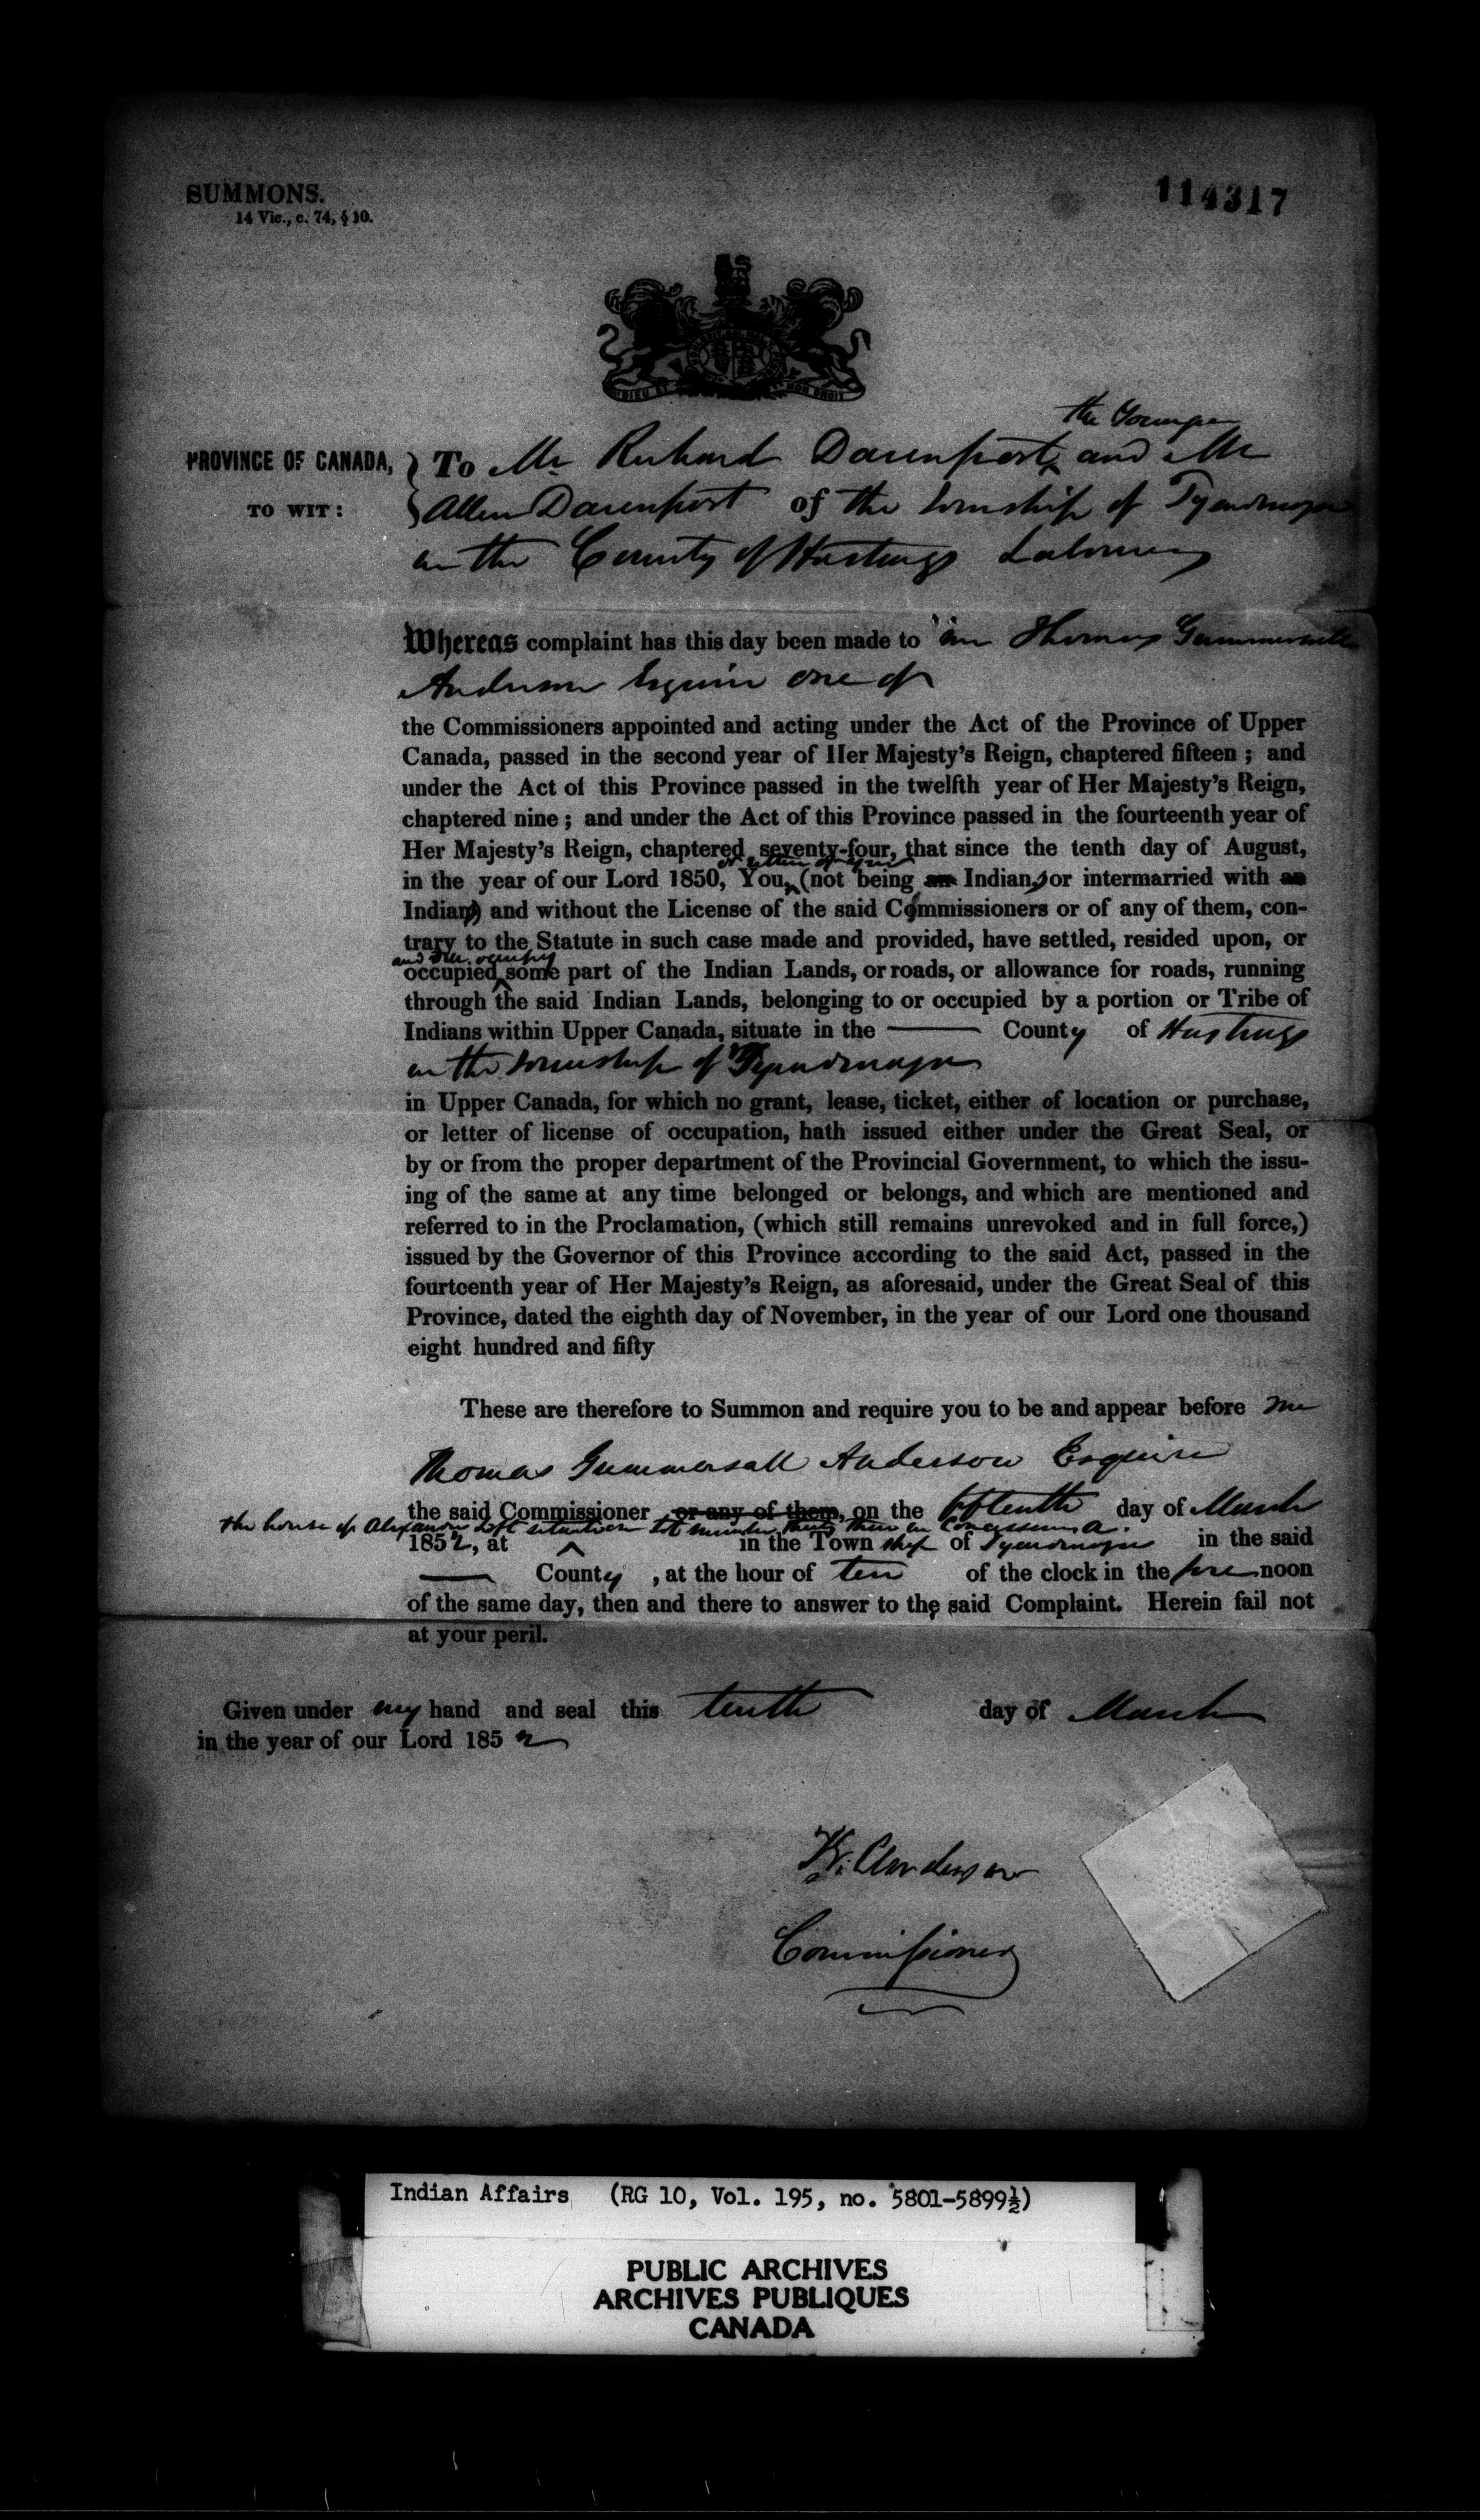 SUMMONS.
14 Vic., c. 74, § 10.
114317
DIEU ET MON DROIT
the Younger
PROVINCE OF CANADA, To Mr Richard Davenport and Mr
TO WIT: Allen Davenport of the township of Tyendinaga
in the County of Hastings Labourers
Whereas complaint has this day been made to me Thomas Gummersall
Anderson Esquire one of
the Commissioners appointed and acting under the Act of the Province of Upper
Canada, passed in the second year of Her Majesty's Reign, chaptered fifteen; and
under the Act of this Province passed in the twelfth year of Her Majesty's Reign,
chaptered nine; and under the Act of this Province passed in the fourteenth year of
Her Majesty's Reign, chaptered seventy-four, that since the tenth day of August,
or either of you
in the year of our Lord 1850, You, (not being an Indian, or intermarried with an
Indian) and without the License of the said Commissioners or of any of them, con-
trary to the Statute in such case made and provided, have settled, resided upon, or
and still occupy
occupied some part of the Indian Lands, or roads, or allowance for roads, running
through the said Indian Lands, belonging to or occupied by a portion or Tribe of
Indians within Upper Canada, situate in the County of Hastings
in the township of Tyendinaga
in Upper Canada, for which no grant, lease, ticket, either of location or purchase,
or letter of license of occupation, hath issued either under the Great Seal, or
by or from the proper department of the Provincial Government, to which the issu-
ing of the same at any time belonged or belongs, and which are mentioned and
referred to in the Proclamation, (which still remains unrevoked and in full force,)
issued by the Governor of this Province according to the said Act, passed in the
fourteenth year of Her Majesty's Reign, as aforesaid, under the Great Seal of this
Province, dated the eighth day of November, in the year of our Lord one thousand
eight hundred and fifty
These are therefore to Summon and require you to be and appear before me
Thomas Gummersall Anderson Esquire
the said Commissioner or any of them, on the fifteenth day of March
the house of Alexander situate on lot number thirty three in Concession A.
1852, at in the Township of Tyendinaga in the said
County, at the hour of ten of the clock in the forenoon
of the same day, then and there to answer to the said Complaint. Herein fail not
at your peril.
Given under my hand and seal this tenth day of March
in the year of our Lord 1852
Anderson
Commissioner
Indian Affairs (RG 10, Vol. 195, no. 5801-5899½)
PUBLIC ARCHIVES
ARCHIVES PUBLIQUES
CANADA